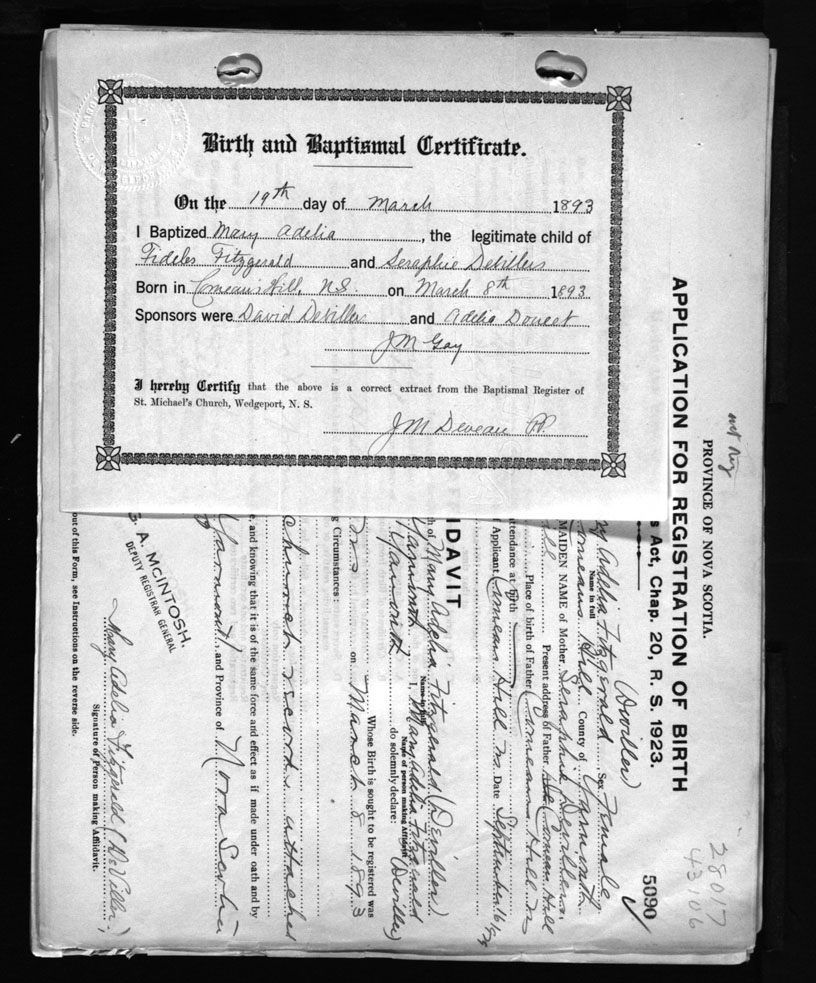 Birth and Baptismal Certificate.
On the 19th day of March 1893
I Baptized Mary Adelia, the legitimate child of
Fideles Fitzgerald and Seraphie Devillers
Born in Comeau's Hill, N.S. on March 8th 1893
Sponsors were David Deviller and Adelia Doucet
J M Gay
I hereby Certify that the above is a correct extract from the Baptismal Register of
St. Michael's Church, Wedgeport, N. S.
J M Deveau P.P.
PROVINCE OF NOVA SCOTIA.
APPLICATION FOR REGISTRATION OF BIRTH
s Act, Chap. 20, R. S. 1923.
5090
28017
43106
(Deviller)
ry Adelia Fitzgerald Sex Female
Name in full
Comeaus Hill County of Yarmouth
MAIDEN NAME of Mother Seraphie Deviller
Present address of Father Comeau Hill
Place of birth of Father Comeaus Hill
attendance at birth
Applicant Comeaus Hill Date September 16
IDAVIT
h of Mary Adelia Fitzgerald (Deviller)
Name in full
Yarmouth I, Mary Adelia Fitzgerald (Deviller)
Name of person making Affidavit
Yarmouth do solemnly declare:
Whose Birth is sought to be registered was
on March 8 1893
g Circumstances:
church records attached
e, and knowing that it is of the same force and effect as if made under oath and by
Yarmouth, and Province of Nova Scotia
A. MCINTOSH.
DEPUTY REGISTRAR GENERAL
Mary Adelia Fitzgerald (DeViller)
Signature of Person making Affidavit.
out of this Form, see Instructions on the reverse side.